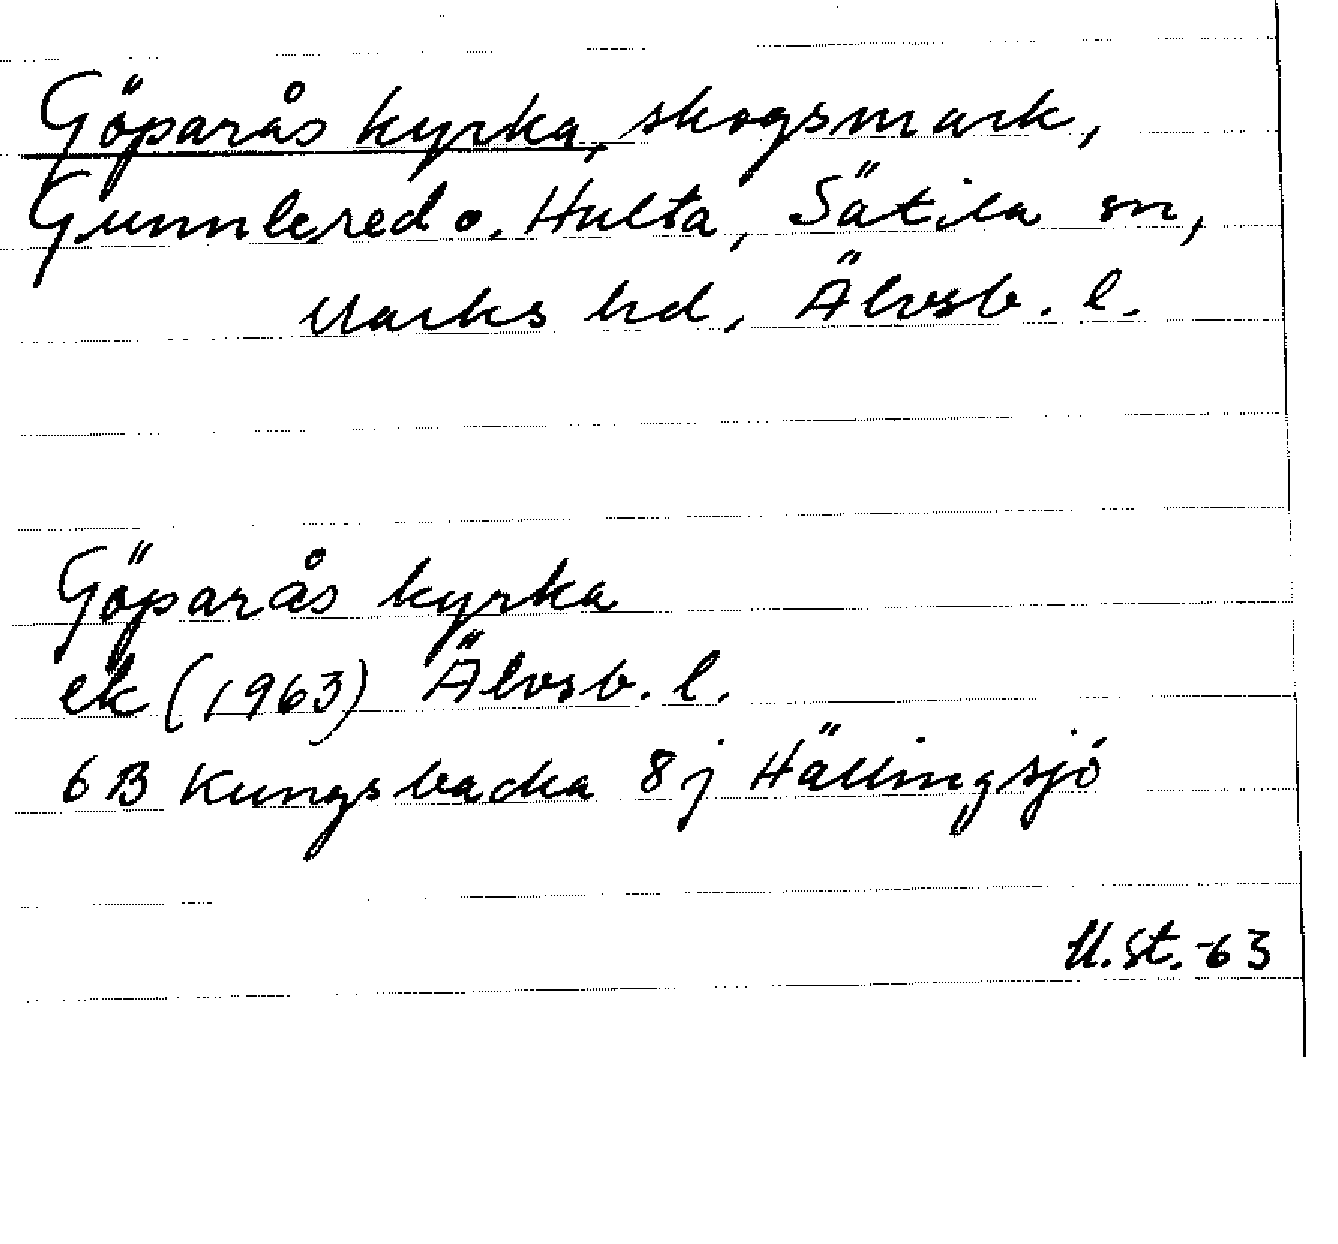 Göparås kyrka, skogsmark,
Gunnlered o. Hulta, Sätila sn,
Marks hd, Älvsb. l.
Göparås kyrka
ek (1963) Älvsb. l.
6B Kungsbacka 8j Hällingsjö
M.St.-63